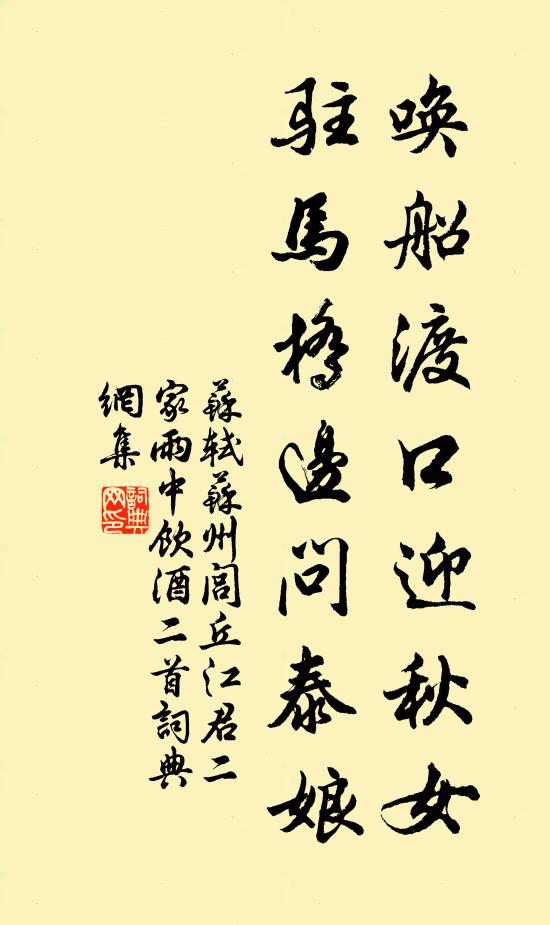 唤船渡口迎秋女
駐馬橋邊问泰娘
蘇轼蘇州闾丘江君二
家雨中飲酒二首詞典
網集
詞典
网印